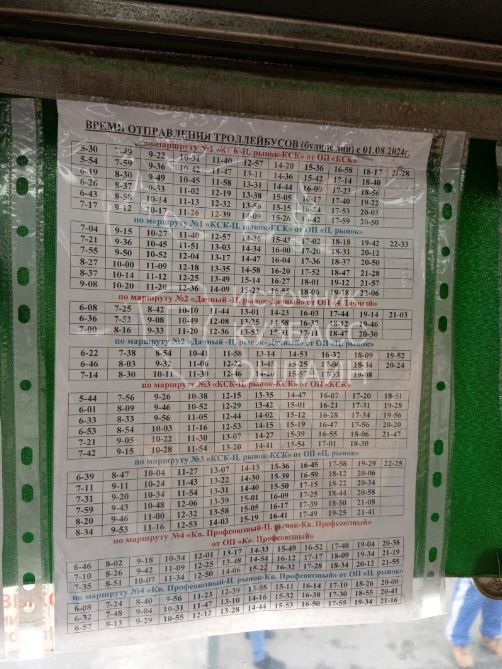 ВРЕМЯ ОТПРАВЛЕНИЯ ТРОЛЛЕЙБУСОВ (будние дни) с 01.08.2024г.
по маршруту №1 «КСК-Ц. рынок-КСК» от ОП «КСК»
5-30 7-49 9-22 10-31 11-40 12-57 14-20 15-36 16-58 18-17 21-28
5-54 7-59 9-36 10-42 11-47 13-11 14-36 15-42 17-14 18-40
6-19 8-30 9-49 10-45 11-58 13-31 14-44 16-00 17-23 18-56
6-26 8-37 9-53 11-02 12-19 13-38 15-05 16-17 17-40 19-22
6-43 8-55 10-14 11-13 12-32 13-56 15-15 16-24 17-53 20-03
7-17 9-12 10-17 11-26 12-39 14-09 15-26 16-42 17-59 20-50
по маршруту №1 «КСК-Ц. рынок-КСК» от ОП «Ц. рынок»
7-04 9-15 10-27 11-40 12-57 14-26 15-43 17-02 18-18 19-42 22-33
7-21 9-36 10-45 11-51 13-03 14-34 16-00 17-20 18-31 20-12
7-55 9-50 10-52 12-04 13-17 14-47 16-04 17-36 18-37 20-50
8-27 10-00 11-09 12-18 13-35 14-58 16-20 17-52 18-47 21-28
8-37 10-14 11-12 12-25 13-49 15-14 16-27 18-01 19-12 21-57
9-08 10-20 11-20 12-36 14-09 15-22 16-55 18-06 19-18 22-06
по маршруту №2 «Дачный-Ц. рынок-Дачный» от ОП «Дачный»
6-08 7-25 8-42 10-10 11-44 13-01 14-23 16-03 17-44 19-14 21-03
6-36 7-52 9-08 10-49 12-08 13-25 14-58 16-37 18-12 19-46
7-00 8-16 9-33 11-20 12-36 13-51 15-31 17-11 18-47 20-30
по маршруту №2 «Дачный-Ц. рынок-Дачный» от ОП «Ц. рынок»
6-22 7-38 8-54 10-41 11-58 13-14 14-53 16-32 18-09 19-52
6-46 8-03 9-32 11-06 12-22 13-45 15-25 17-06 18-34 20-24
7-14 8-30 10-11 11-30 12-46 14-20 15-57 17-33 19-08
по маршруту №3 «КСК-Ц. рынок-КСК» от ОП «КСК»
5-44 7-56 9-26 10-38 12-15 13-35 14-47 16-07 17-20 18-51
6-01 8-09 9-46 10-52 12-29 13-42 15-01 16-21 17-31 19-28
6-33 8-33 9-56 11-05 12-44 14-02 15-12 16-28 17-34 19-56
6-53 8-54 10-03 11-16 12-53 14-15 15-19 16-47 17-56 20-20
7-21 9-05 10-22 11-30 13-07 14-27 15-39 16-55 18-06 21-47
7-42 9-15 10-28 11-54 13-20 14-41 15-54 17-01 18-30
по маршруту №3 «КСК-Ц. рынок-КСК» от ОП «Ц. рынок»
6-39 8-47 10-04 11-27 13-07 14-13 15-36 16-45 17-58 19-29 22-25
7-11 9-11 10-24 11-43 13-21 14-22 15-39 16-59 18-12 20-06
7-31 9-20 10-34 11-54 13-31 14-40 15-50 17-15 18-22 20-34
7-59 9-43 10-48 12-06 13-39 15-01 16-09 17-25 18-44
8-20 9-46 11-00 12-32 13-58 15-05 16-17 17-39 18-50 21-08
8-34 9-53 11-16 12-53 14-03 15-19 16-41 17-49 19-25 21-41
по маршруту №4 «Кв. Профсоюзный-Ц. рынок-Кв. Профсоюзный»
от ОП «Кв. Профсоюзный»
6-46 8-02 9-18 10-34 12-01 13-17 14-33 15-49 16-52 17-48 19-04 20-38
7-10 8-26 9-42 11-09 12-25 13-48 14-54 16-12 17-17 18-09 19-34 21-19
7-35 8-51 10-07 11-34 12-50 14-06 15-22 16-32 17-28 18-34 20-12 21-55
по маршруту №4 «Кв. Профсоюзный-Ц. рынок-Кв. Профсоюзный» от ОП «Ц. рынок»
6-08 7-24 8-40 9-56 11-23 12-39 13-55 15-11 16-14 17-10 18-26 20-00
6-32 7-48 9-04 10-31 11-47 13-10 14-16 15-32 16-38 17-30 18-55 20-41
6-57 8-13 9-29 10-55 12-12 13-28 14-44 15-53 16-50 17-55 19-34 21-16